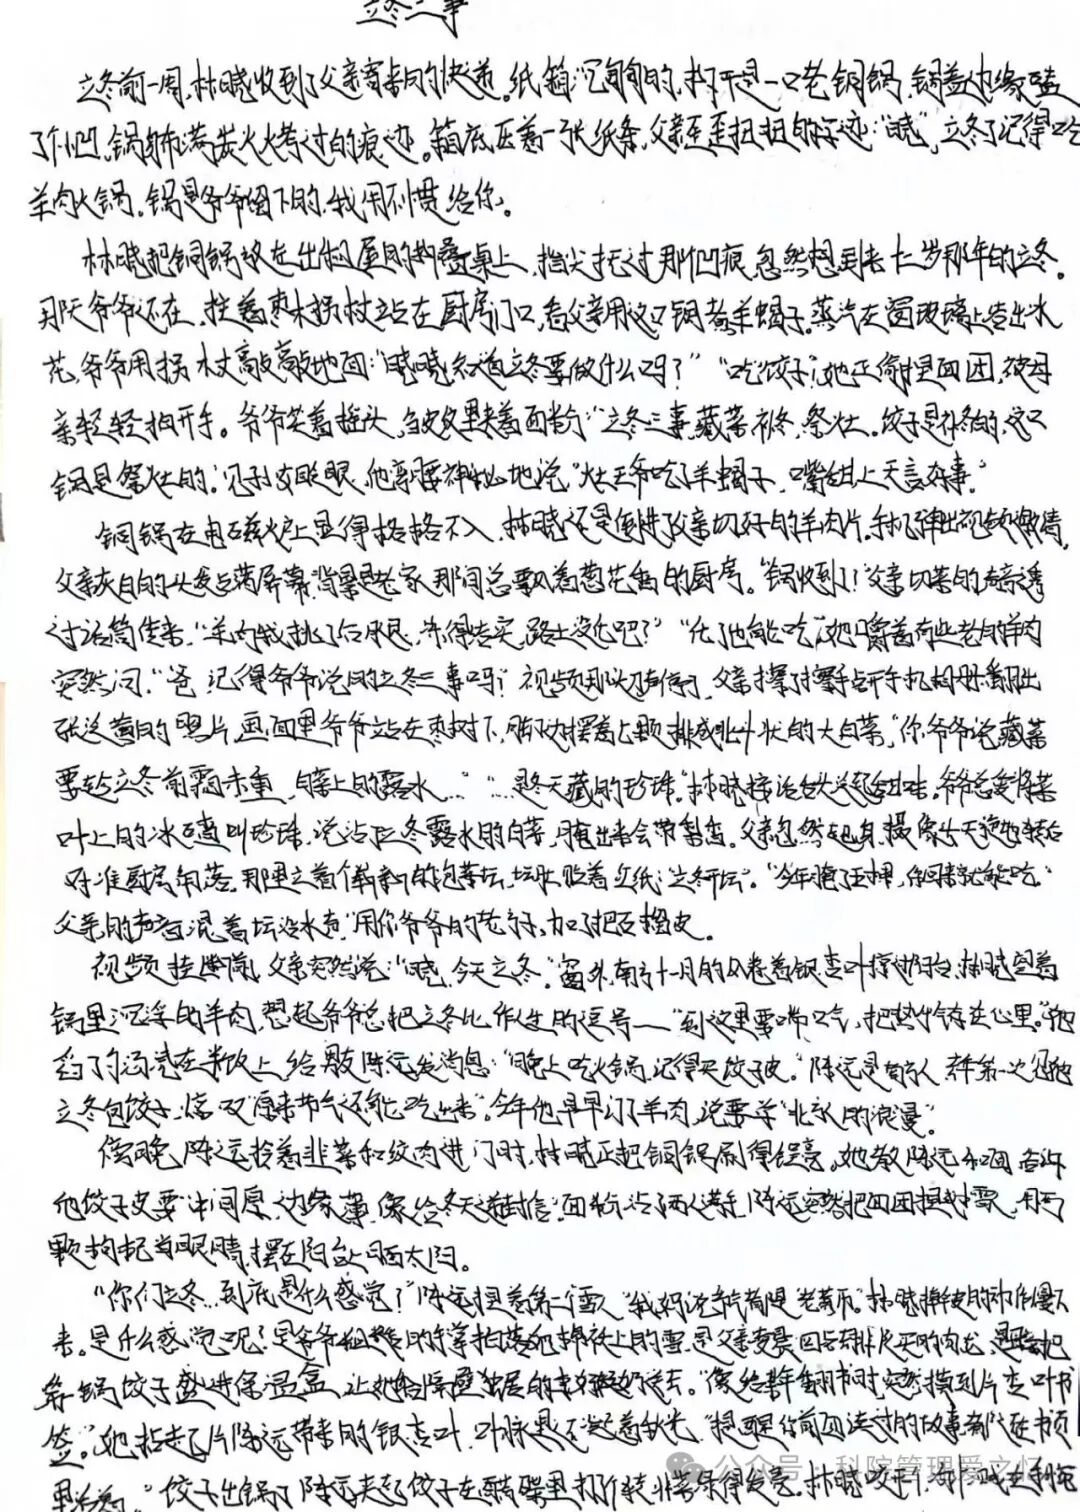 立冬之事
立冬前一周,林晓收到了父亲寄来的快递。纸箱沉甸甸的,打开是一口老铜锅,锅盖边缘磕
了个凹,锅身布满炭火烤过的痕迹。箱底压着一张纸条,父亲歪歪扭扭的字迹:“晓,立冬了记得吃
羊肉火锅。锅是爷爷留下的,我用不惯,给你。
林晓把铜锅放在出租屋的折叠桌上,指尖抚过那凹痕,忽然想到七岁那年的立冬。
那天爷爷还在,拄着枣木拐杖站在厨房门口,看父亲用这口铜煮羊蝎子。蒸汽在窗玻璃上凝出水
花,爷爷用拐杖敲敲地面:“晓晓,知道立冬要做什么吗?”“吃饺子!”她正偷捏面团,被母
亲轻轻拍开手。爷爷笑着摇头,皱纹里夹着面粉:“立冬三事,藏菜,补冬,祭灶。饺子是补冬的,这口
锅是祭灶的。”见孙女眨眼,他弯腰神秘地说:“灶王爷吃了羊蝎子,嘴甜,上天言好事。”
铜锅在电磁炉上显得格格不入,林晓还是倒进了父亲切好的羊肉片。手机弹出视频邀请,
父亲灰白的头发占满屏幕,背景是老家那间总飘着葱花香的厨房。“锅收到了?”父亲切菜的声音透
过话筒传来,“羊肉我挑了后腿,冻得结实,路上没化吧?”“化了也能吃。”她嚼着有些老的羊肉
突然问:“爸,记得爷爷说的立冬三事吗?”视频那头刀声停了,父亲擦了擦手,点开手机相册翻出
张泛黄的照片,画面里爷爷站在枣树下,脚边摆着七颗排成北斗状的大白菜,“你爷爷说藏菜
要赶立冬前霜未重,白菜上的露水……”“……是冬天藏的珍珠。”林晓接话。爷爷总爱将菜
叶上的冰碴叫珍珠,说沾了立冬露水的白菜,腌出来会带梨香。父亲忽然起身,摄像头天旋地转后
对准厨房角落。那里立着个崭新的泡菜坛,坛肚贴着红纸:“立冬开坛”。“今年腌了,你回来就能吃。”
父亲的声音混着坛沿水声,“用你爷爷的老方子,加了把石榴皮。
视频挂断前,父亲突然说:“晓,今天立冬。”窗外,南方十一月的风卷着银杏叶掠过阳台,林晓望着
锅里沉浮的羊肉,想起爷爷总把立冬比作人生的逗号——“到这里要喘口气,把热乎存在心里。”她
舀了勺汤浇在米饭上,给男友陈远发消息:“晚上吃火锅,记得买饺子皮。”陈远是南方人,去年第一次见她
立冬包饺子,惊叹“原来节气还能吃出来”。今年他早早订了羊肉,说要学“北京人的浪漫”。
傍晚,陈远拎着韭菜和绞肉进门时,林晓正把铜锅刷得锃亮。她教陈远和面,告诉
他饺子皮要“中间厚,边缘薄,像给冬天递封信”。面粉沾了两人满手,陈远突然把面团捏成雪人,用两
颗枸杞当眼睛,摆在阳台上晒太阳。
“你们立冬…到底是什么感觉?”陈远捏着第二个雪人,“我妈说节气都是老黄历。”林晓擀皮的动作慢下
来。是什么感觉呢?是爷爷粗糙的手掌拍落她棉衣上的雪,是父亲
锅饺子盛进保温盒,让她给隔壁独居的奶奶送去。“像给年翻书时,突然摸到片杏叶书
签。”她拈起了片陈远带来的银杏叶,叶脉里还凝着秋光,“提醒你前面读过的故事,都在书页
里”饺子出锅了,陈远夹起饺子在醋碟里打个转,林晓咬开
公众号·科院管理爱之忆